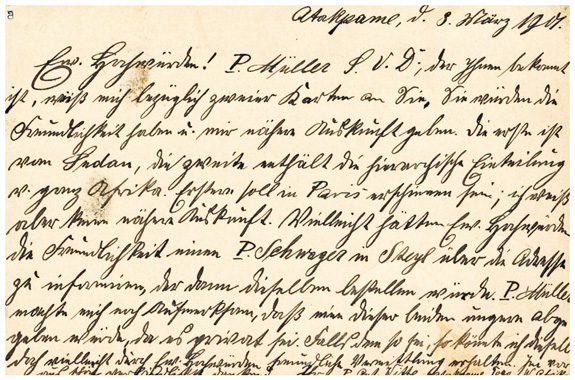 Atakpame, d. 3. März 1901.
Ew. Hochwürden! P. Müller S. V. D., der Ihnen bekannt
ist, weist mich bezüglich zweier Karten an Sie, Sie würden die
Freundlichkeit haben u. mir nähere Auskunft geben. Die erste ist
vom Sedan, die zweite enthält die hierarchische Einteilung
v. ganz Afrika. Erstere soll in Paris erschienen sein; ich weiß
aber keine nähere Auskunft. Vielleicht hätten Ew. Hochwürden
die Freundlichkeit einen P. Schwager in Steyl über die Adresse
zu informieren, der dann dieselben bestellen würde. P. Müller
machte mich noch aufmerksam, daß man dieser beiden ungern abge
geben würde, da es privat sei. Falls dem so sei, so könnte ich dieselb
doch vielleicht durch Ew. Hochwürden freundliche Vermittlung erhalten.